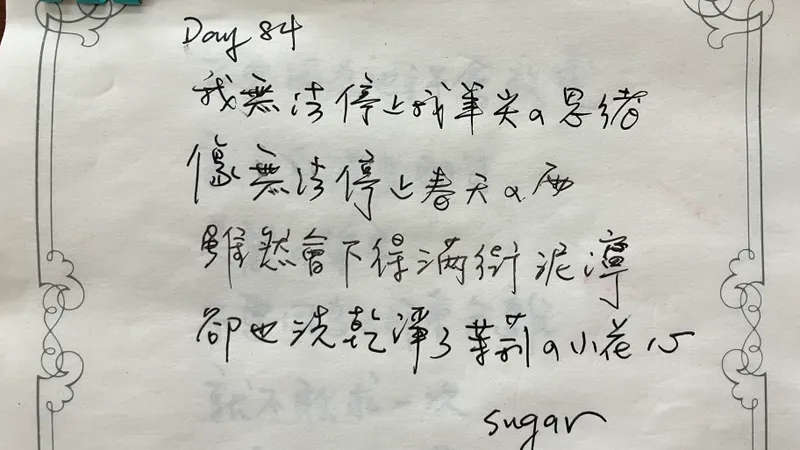 Day 84
我無法停止我筆尖の思緒
像無法停止春天の雨
雖然會下得滿街泥濘
卻也洗乾淨了茉莉の小花心
sugar